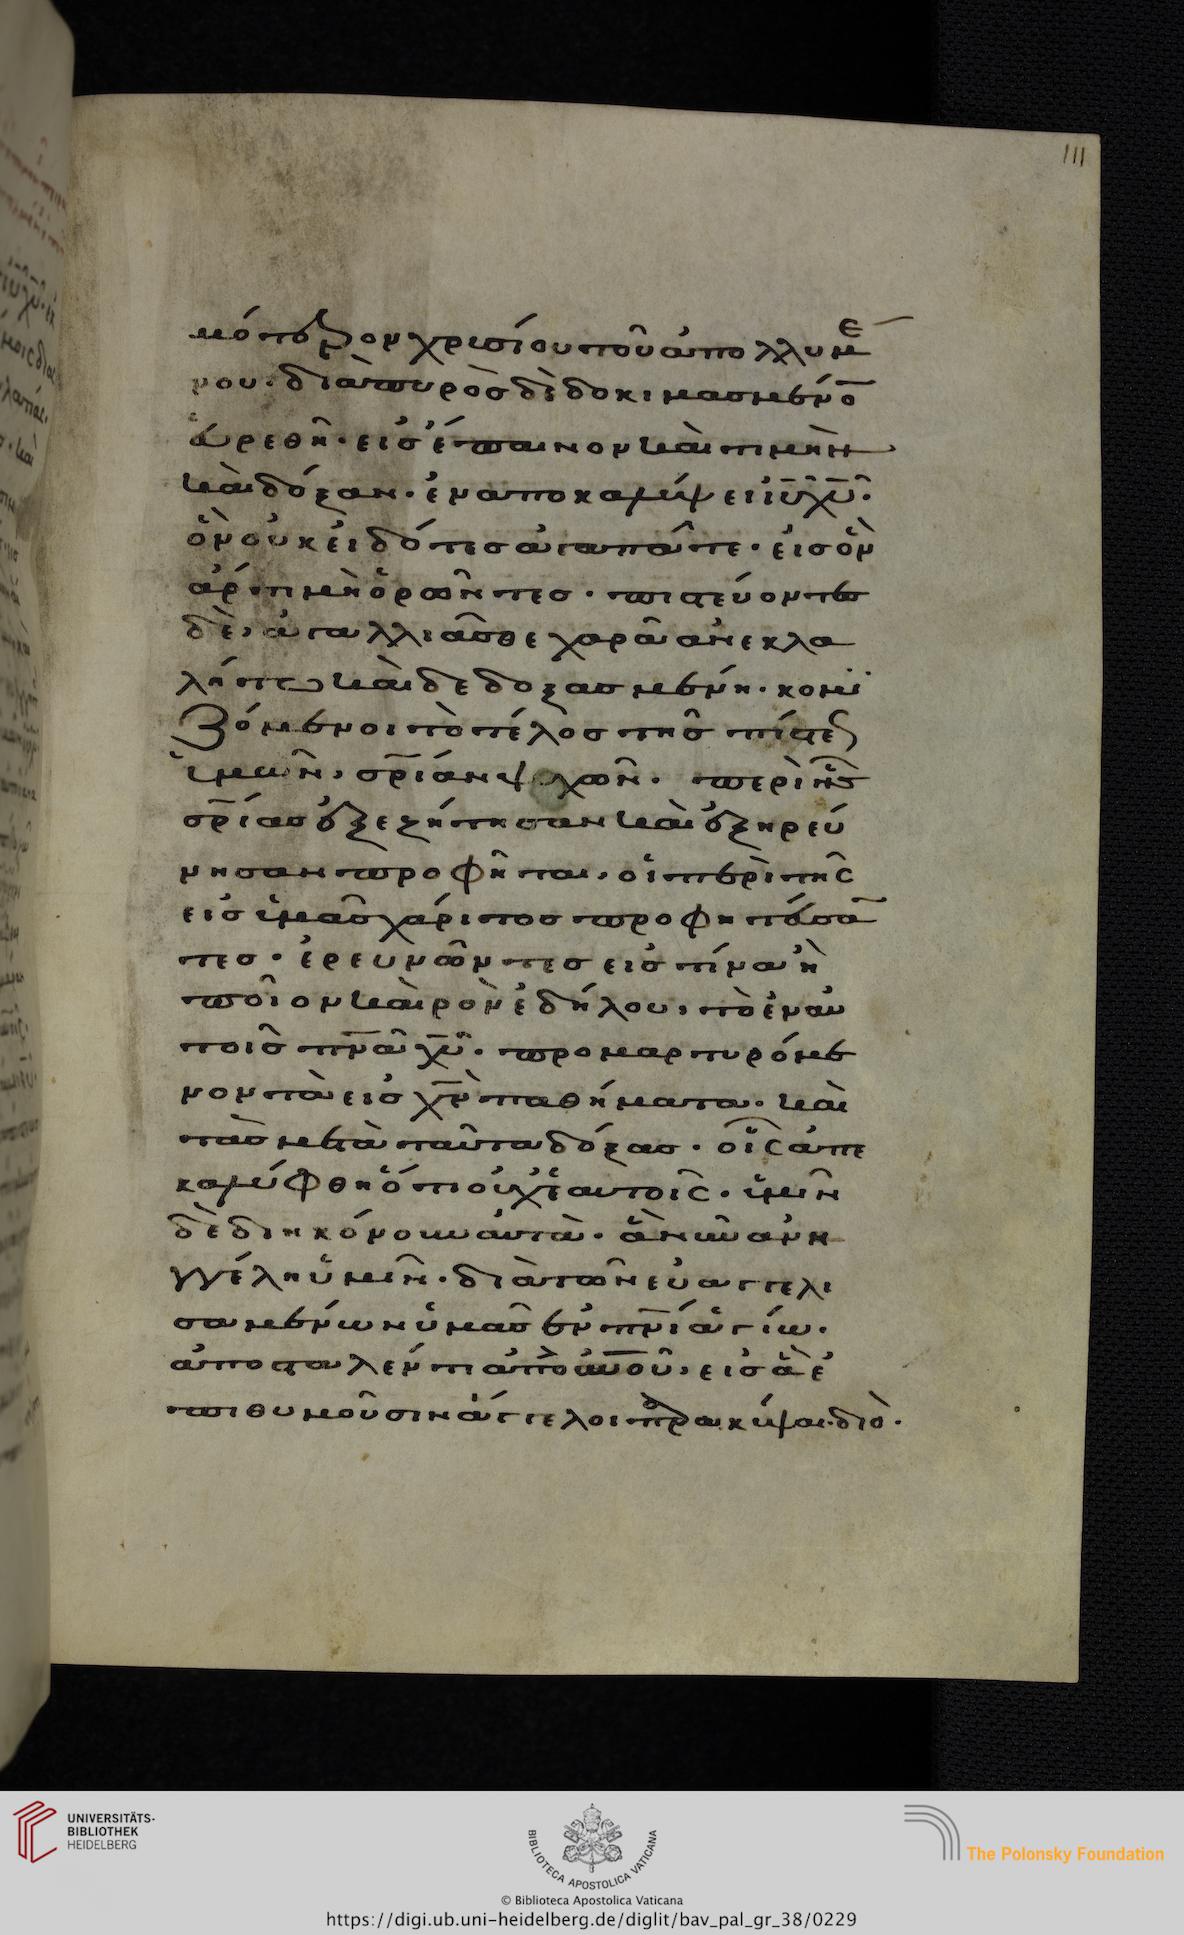 111
μότερον χρυσίου τοῦ ἀπολλυμέ
νου· διὰ πυρὸς δὲ δοκιμασμένο
εὑρεθῆ· εἰς ἔπαινον καὶ τιμὴν
καὶ δόξαν· ἐν ἀποκαλύψει ἰυ χυ·
ὃν οὐκ εἰδότες ἀγαπᾶτε· εἰς ὃν
ἄρτι μὴ ὁρῶντες· πιστεύοντες
δὲ, ἀγαλλιᾶσθε χαρᾶ ἀνεκλα
λήτω καὶ δεδοξασμένη· κομι
ζόμενοι τὸ τέλος τῆς πίστεως
ὑμῶν, σρίαν ψυχῶν· περὶ ἧς
σρίας ἐξεζήτησαν καὶ ἐξηρεύ
νησαν προφῆται, οἱ περὶ τῆς
εἰς ὑμᾶς χάριτος προφητεύσαν
τες· ἐρευνῶντες εἰς τίνα ἢ
ποῖον καιρὸν ἐδήλου, τὸ ἐν αὐ
τοῖς πνα χυ· προμαρτυρόμε
νον τὰ εἰς χν παθήματα· καὶ
τὰς μετὰ ταῦτα δόξας· οἷς ἀπε
καλύφθη ὅτι οὐχ ἑαυτοῖς· ὑμῖν
δὲ διηκόνουν αὐτὰ· ἃ νῦν ἀνη
γγέλη ὑμῖν· διὰ τῶν εὐαγγελι
σαμένων ὑμᾶς ἐν πνι ἁγίω·
ἀποσταλέντι ἀπὸ οὐνου, εἰς ἃ ἐ
πιθυμοῦσιν ἄγγελοι παρακύψαι· διὸ·
UNIVERSITÄTS-
BIBLIOTHEK
HEIDELBERG
BIBLIOTECA APOSTOLICA VATICANA
The Polonsky Foundation
© Biblioteca Apostolica Vaticana
https://digi.ub.uni-heidelberg.de/diglit/bav_pal_gr_38/0229